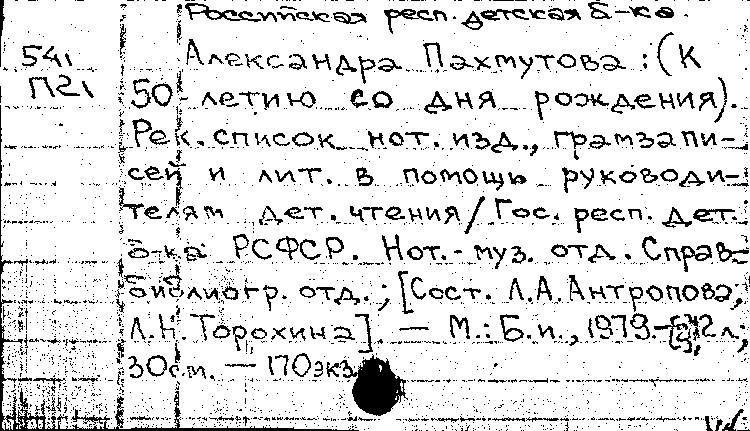 Российская респ. детская б-ка.
541 Александра Пахмутова: (К
П21 50-летию со дня рождения).
Рек. список нот. изд., грамзапи-
сей и лит. в помощь руководи-
телям дет. чтения/Гос. респ. дет.
б-ка РСФСР. Нот.-муз. отд. Справ.-
библиогр. отд.; [Сост. Л.А. Антропова,
Л.Н. Торохина]. — М.: Б.и., 1979. 2 л;
30см. — 170экз